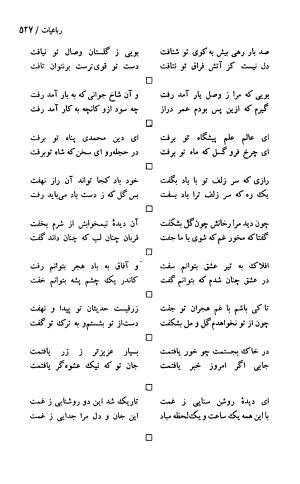 رباعیات / ۵۲۷
صد بار رهی بیش به کوی تو شتافت بویی ز گلستان وصال تو نیافت
دل نیست کز آتش فراق تو نتافت دست تو قوی‌ترست برنتوان تافت
بویی که مرا ز وصل یار آمد رفت و آن شاخ جوانی که به بار آمد رفت
گیرم که ازین پس بودم عمر دراز چه سود ازو کانچه به کار آمد رفت
ای عالم علم پیشگاه تو برفت ای دین محمدی پناه تو برفت
ای چرخ فروگسل که ماه تو برفت در حجله‌رو ای سخن که شاه تو برفت
رازی که سر زلف تو با باد بگفت خود باد کجا تواند آن راز نهفت
یک ره که سر زلف ترا باد بسفت بس گل که ز دست باد می‌باید رفت
چون دید مرا رخانش چون گل بشکفت آن دیدهٔ نیمخوابش از شرم بخفت
گفتا که مخور غم که شوی با ما جفت قربان چنان لب که چنان داند گفت
افلاک به تیر عشق بتوانم سفت و آفاق به باد هجر بتوانم رفت
در عشق چنان شدم که بتوانم گفت کاندر یک چشم پشه بتوانم خفت
تا کی باشم با غم هجران تو جفت زرقیست حدیثان تو پیدا و نهفت
چون از تو نخواهدم گل و مل بشکفت دست از تو بشستم و به ترک تو گفت
در خاک بجستمت چو خور یافتمت بسیار عزیزتر ز زر یافتمت
جایی اگر امروز خبر یافتمت جان تو که نیک عشوه‌گر یافتمت
ای دیدهٔ روشن سنایی ز غمت تاریک شد این دو روشنایی ز غمت
با این همه یک ساعت و یک لحظه مباد این جان و دل مرا جدایی ز غمت